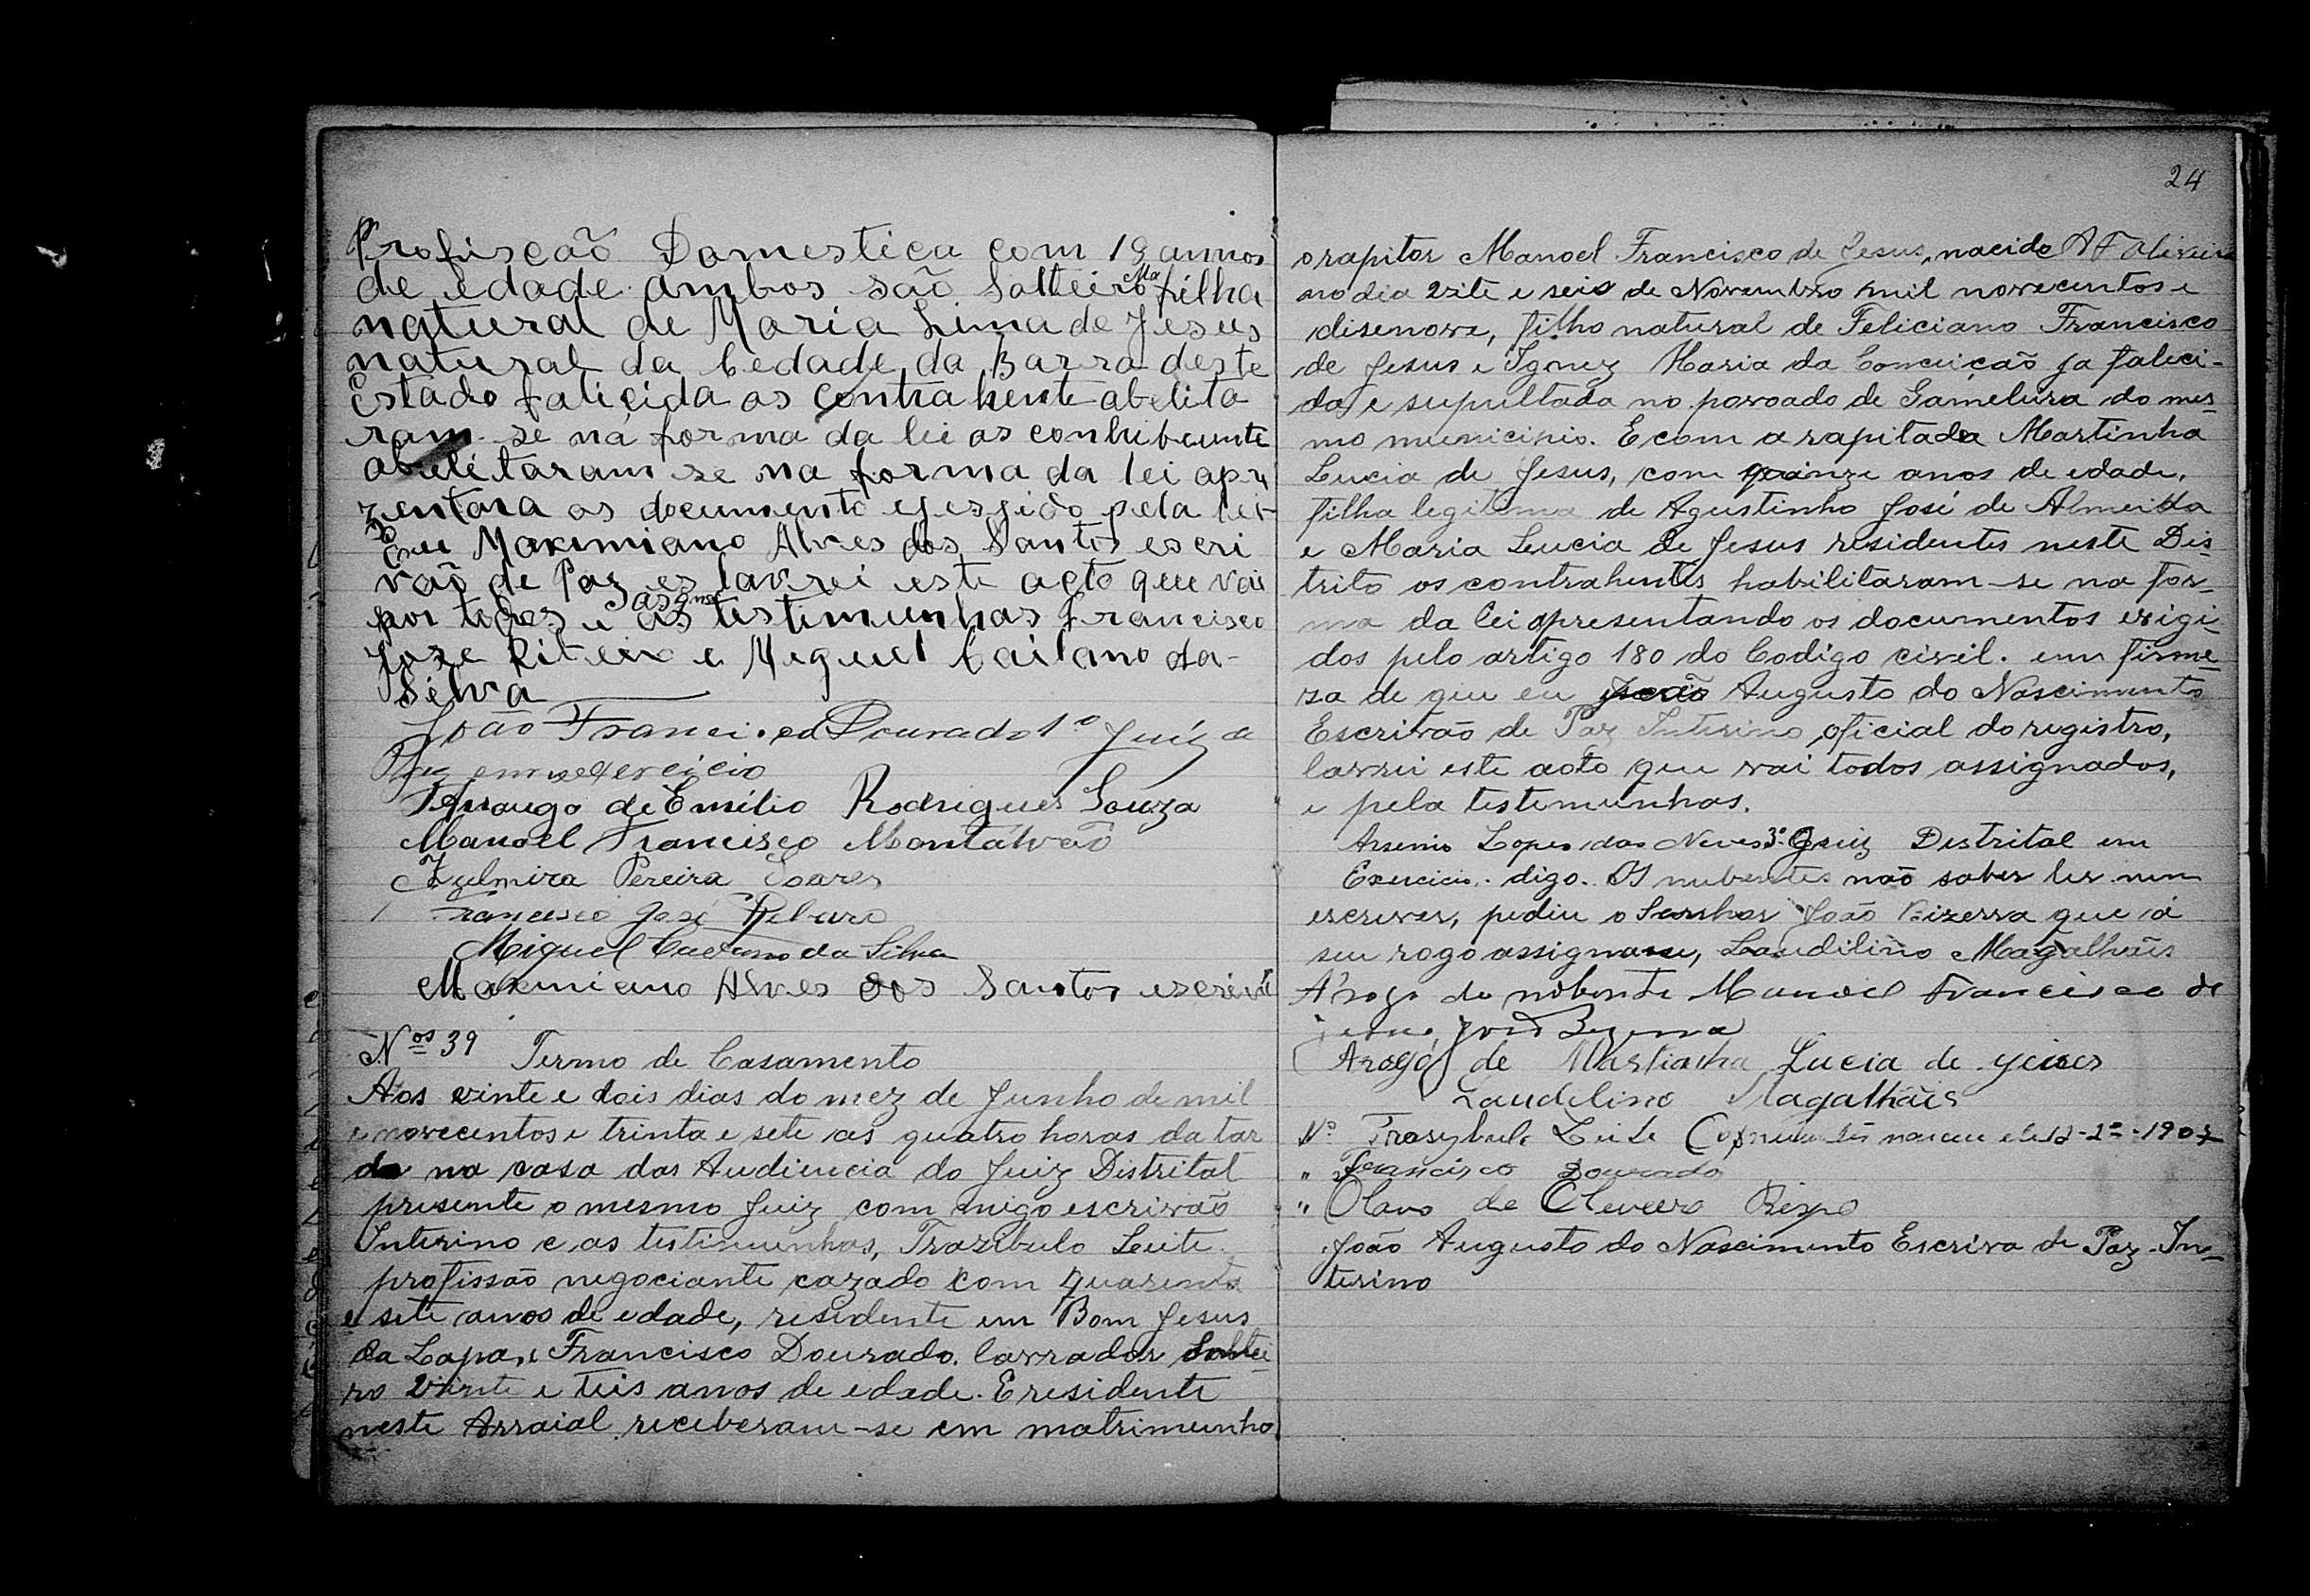 Profiscão Domestica com 19 annos
de edade ambos são Solteiro Ma filha
natural de Maria Lima de Jesus
natural da Cedade da Barra deste
Estado faliçida as contrahente abelita
ram se na forma da lei as
abelitaram se na forma da lei apre
zentara os documento pela lei
Eu Maximiano Alves dos Santos escri
vão de Paz es lavrei este acto que vai
por todos e as testimunhas Francisco
Joze Ribeiro e Meguel Caitano da
Selva
João Francisco Dourado 1º Juiz de
Paz em exercicio
de Emílio Rodrigues Souza
Manoel Francisco Montalvão
Zulmira Pereira Soares
Francisco José
Miguel Caetano da Silva
Maximiano Alves dos Santos
Nos 39 Termo de Casamento
Aos vinte e dois dias do mez de Junho de mil
e novecentos e trinta e sete as quatro horas da tar
de na casa das Audiencia do Juiz Distrital
presente o mesmo Juiz com migo escrivão
Interino e as testimunhas, Trazibulo Leite
profissão negociante cazado com quarenta
e sete anos de edade, residente em Bom Jesus
da Lapa, e Francisco Dourado. lavrador Soltei
ro vinte e tres anos de edade. E residente
neste Arraial receberam-se em matrimunho
24
o rapitor Manoel Francisco de Jesus, nacido
no dia vite e seis de Novembro mil novecentos e
disenove, filho natural de Feliciano Francisco
de Jesus e Ignez Maria da Conceição ja faleci-
da, e sepultada no povoado de Gamelera do mes
mo municipio. E com a rapitada Martinha
Lucia de Jesus, com quinze anos de edade,
filha legitima de Agustinho José de Almeida
e Maria Lucia de Jesus residentes neste Dis
trito os contrahentes habilitaram-se na for-
ma da lei apresentando os documentos exigi
dos pelo artigo 180 do Codigo civil. em firme
sa de que eu João Augusto do Nascimento
Escrivão de Paz Interino oficial do registro,
lavrei este acto que vai todos assignados,
e pela testemunhas.
Arsenio Lopes das Neves 3º Juiz Distrital em
Exercicio. digo. Os nubentes não saber ler nem
escrever, pediu o Senhor João Bizerra que á
seu rogo assignasse, Laudilino Magalhães
A rogo do nobente Manoel Francisco de
Jesus, Bezerra
Arogo de Martinha Lucia de
Laudelino Magalhães
Nº Trasybulo Leite
" Francisco Dourado
" Olavo de
João Augusto do Nascimento Escriva de Paz In-
terino